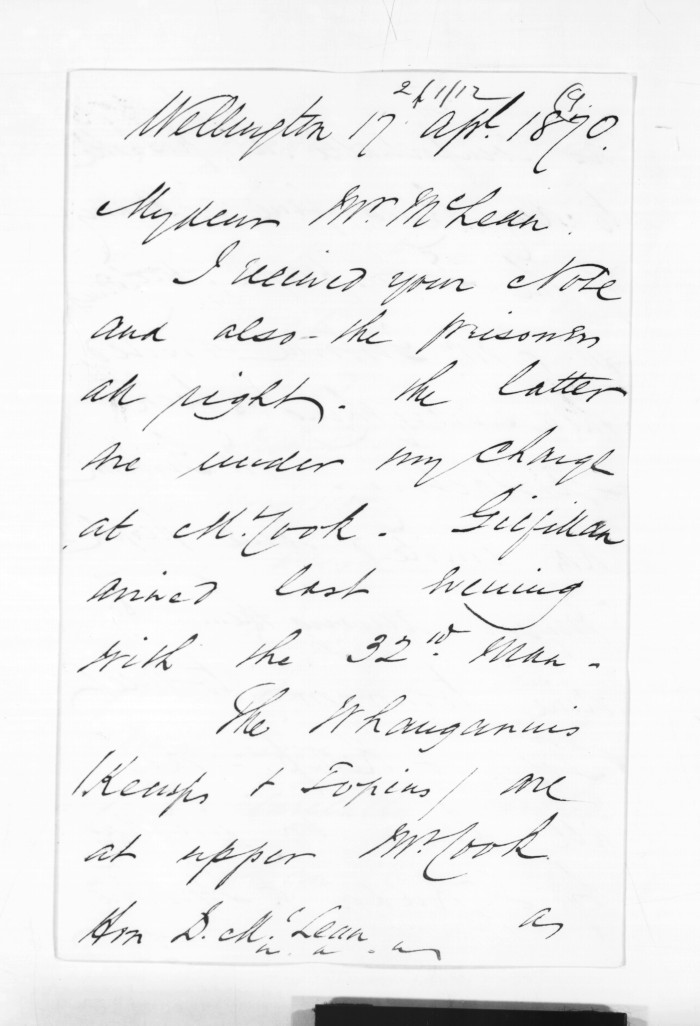 Wellington 17 Apl. 1870.
My dear Mr. McLean.
I received your Note
and also the prisoners
all right. The latter
are under my charge
at Mt. Cook. Gilfillan
arrived last evening
with the 32nd. Man.
The Whanganuis
(Kemps & Topias) are
at upper Mt. Cook
as
Hon D. McLean